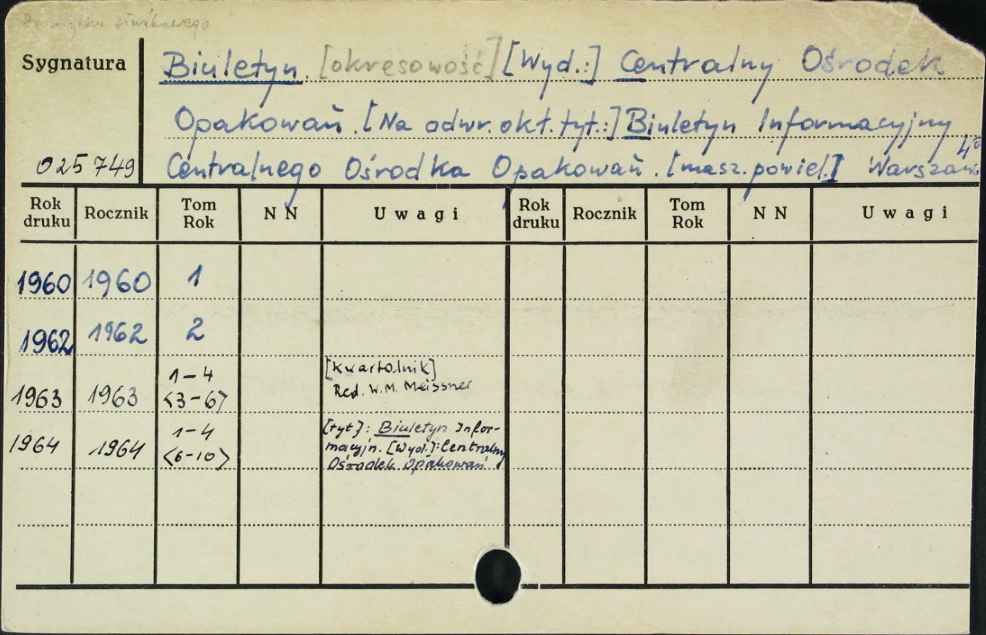 Sygnatura
Biuletyn [okresowość] [Wyd.:] Centralny Ośrodek
Opakowań. [Na odwr. okt. tyt.:] Biuletyn Informacyjny
025749 Centralnego Ośrodka Opakowań. [masz. powiel.] Warszawa 4°
Rok druku Rocznik Tom Rok NN Uwagi Rok druku Rocznik Tom Rok NN Uwagi
1960 1960 1
1962 1962 2
1963 1963 1-4 <3-6> [kwartalnik] Red. W.M. Meissner
1964 1964 1-4 <6-10> [tyt]: Biuletyn Infor-
macyjn. [Wyd.]: Centralny
Ośrodek Opakowań